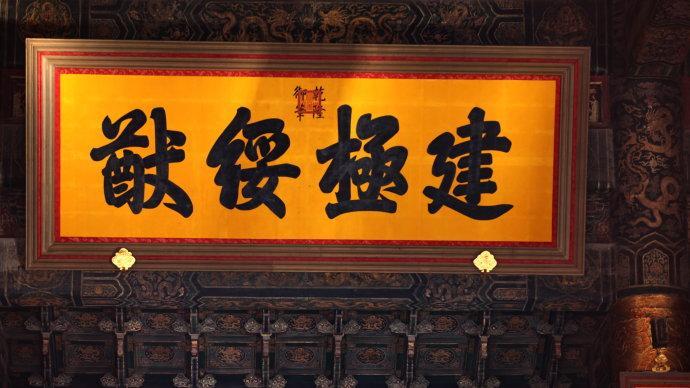 建極綏猷
乾隆
御筆